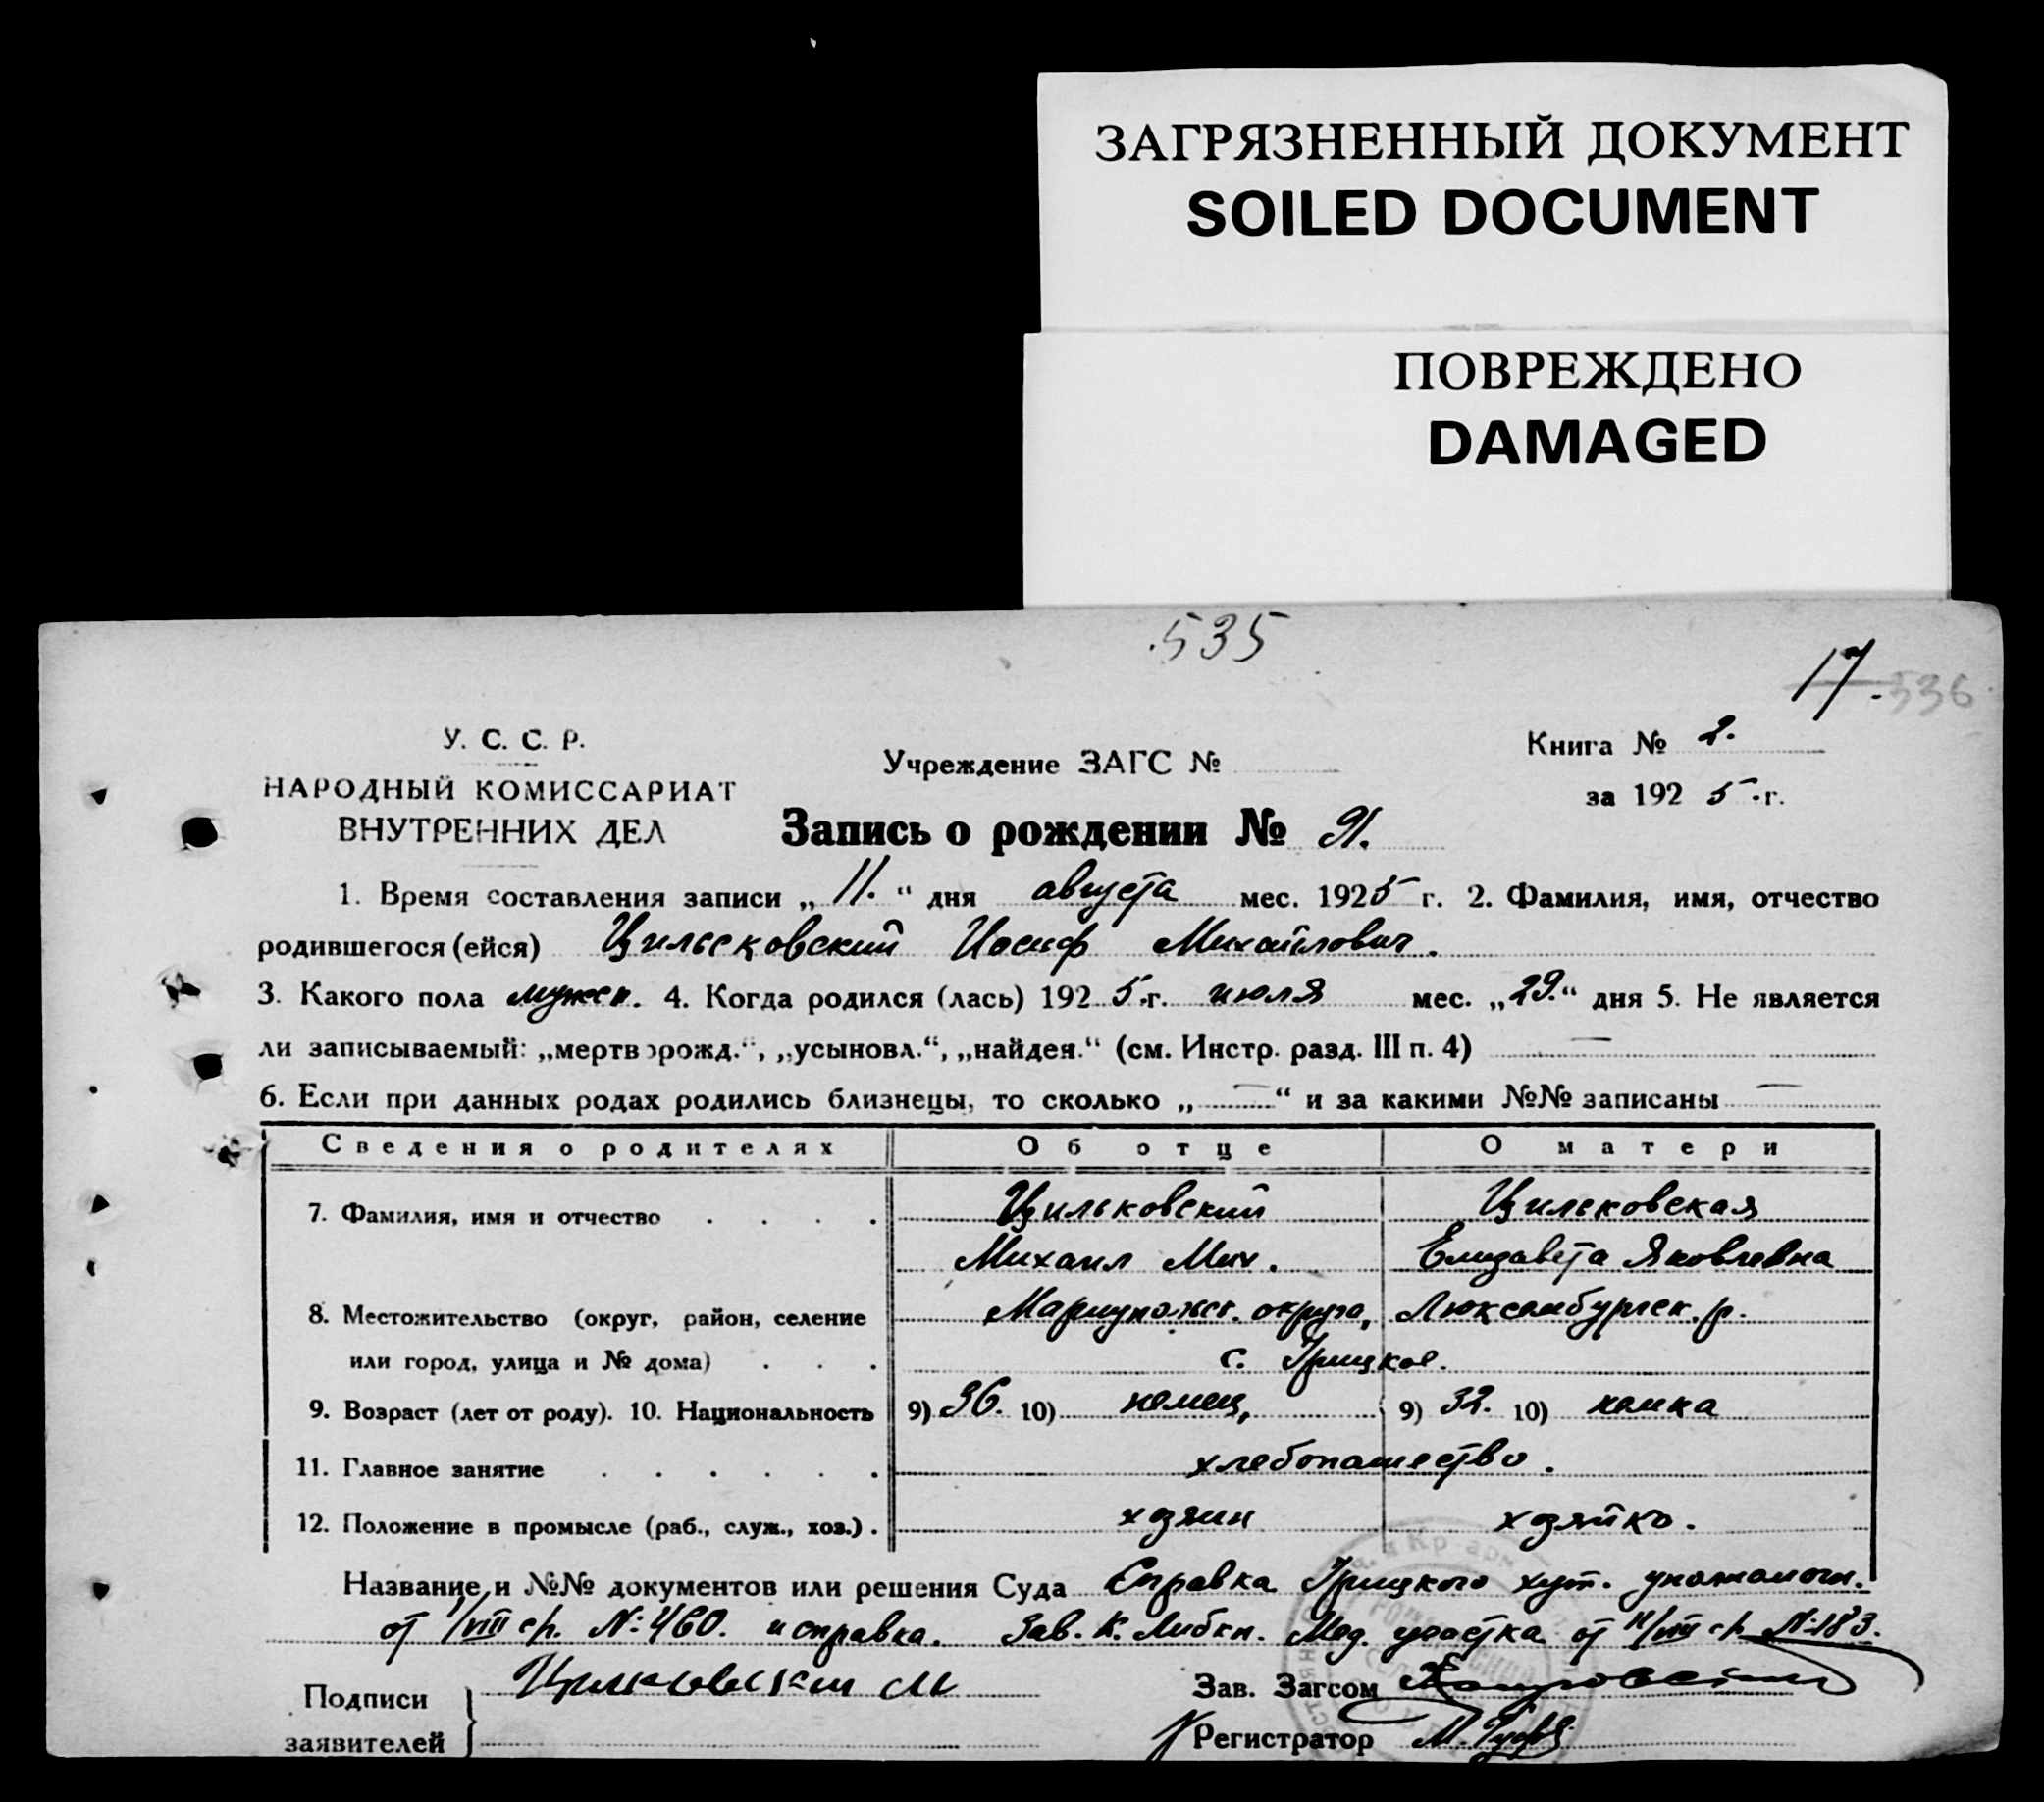 ЗАГРЯЗНЕННЫЙ ДОКУМЕНТ
SOILED DOCUMENT
ПОВРЕЖДЕНО
DAMAGED
535
17. 536
У. С. С. Р.
НАРОДНЫЙ КОМИССАРИАТ
ВНУТРЕННИХ ДЕЛ
Учреждение ЗАГС №
Книга № 2.
за 1925 г.
Запись о рождении № 91.
1. Время составления записи „11.“ дня августа мес. 1925 г. 2. Фамилия, имя, отчество
родившегося (ейся) Цильковский Иосиф Михайлович.
3. Какого пола мужск. 4. Когда родился (лась) 1925 г. июля мес. „29.“ дня 5. Не является
ли записываемый: „мертворожд.“, „усыновл.“, „найден.“ (см. Инстр. разд. III п. 4) —
6. Если при данных родах родились близнецы, то сколько „—“ и за какими №№ записаны —
Сведения о родителях Об отце О матери
7. Фамилия, имя и отчество . . . . Цильковский Цильковская
Михаил Мих. Елизавета Яковлевна
8. Местожительство (округ, район, селение Мариупольск. округа, Люксембургск. р.
или город, улица и № дома) . . . с. Грицкое.
9. Возраст (лет от роду). 10. Национальность 9) 36. 10) немец, 9) 32. 10) немка
11. Главное занятие . . . . . . хлебопашество.
12. Положение в промысле (раб., служ., хоз.) . хозяин хозяйка.
Название и №№ документов или решения Суда Справка Грицкого хут. уполномоч.
от 1/VIII с/г. №: 460. и справка. Зав. К. Либкн. Мед. участка от 11/VIII с/г №: 183.
Подписи
заявителей
Цильковский М
Зав. Загсом
Регистратор М.